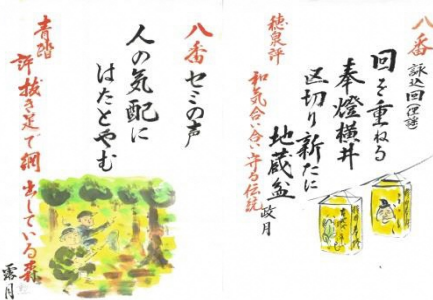 八番 詠込回(俚謡)
回を重ねる
奉燈横井
区切り新たに
地蔵盆
政月
穂泉評
和気合い合い守る伝統
八番 セミの声
人の気配に
はたとやむ
青踏
評 抜き足で網出している森
露月